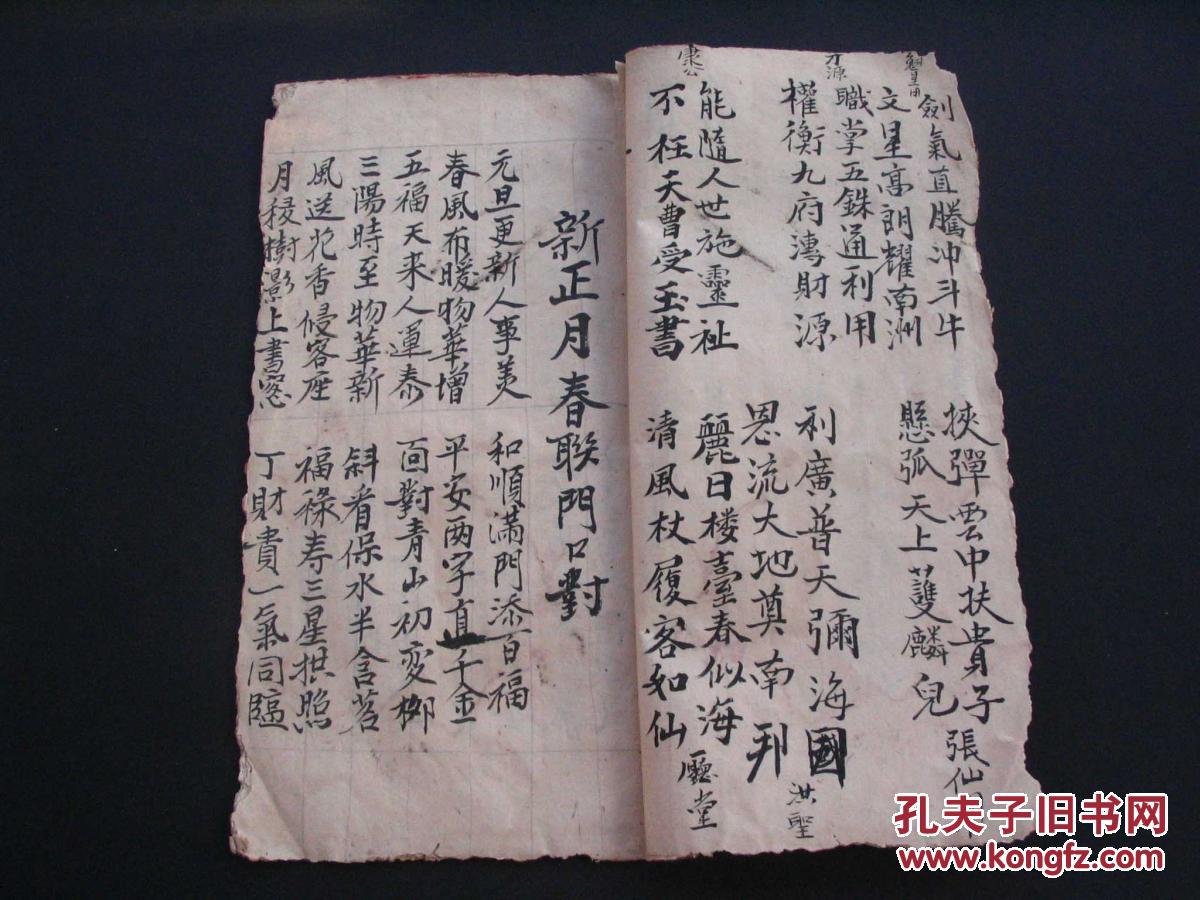 魁星
劍氣直騰冲斗牛
文星高朗耀南洲
才源
職掌五銖通利用
權衡九府溥財源
康公
能隨人世施靈祉
不枉天曹受玉書
挾彈雲中扶貴子
懸弧天上䕶麟兒
張仙
利廣普天彌海國
恩流大地奠南邦
洪聖
麗日楼臺春似海
清風杖履客如仙
廳堂
新正月春聯門口對
元旦更新人事美
春風布暖物華增
五福天来人運泰
三陽時至物華新
風送花香侵客座
月移樹影上書窓
和順滿門添百福
平安两字直千金
面對青山初变柳
斜看保水半含茗
福祿寿三星拱照
丁財貴一氣同臨
孔夫子旧书网
www.kongfz.com